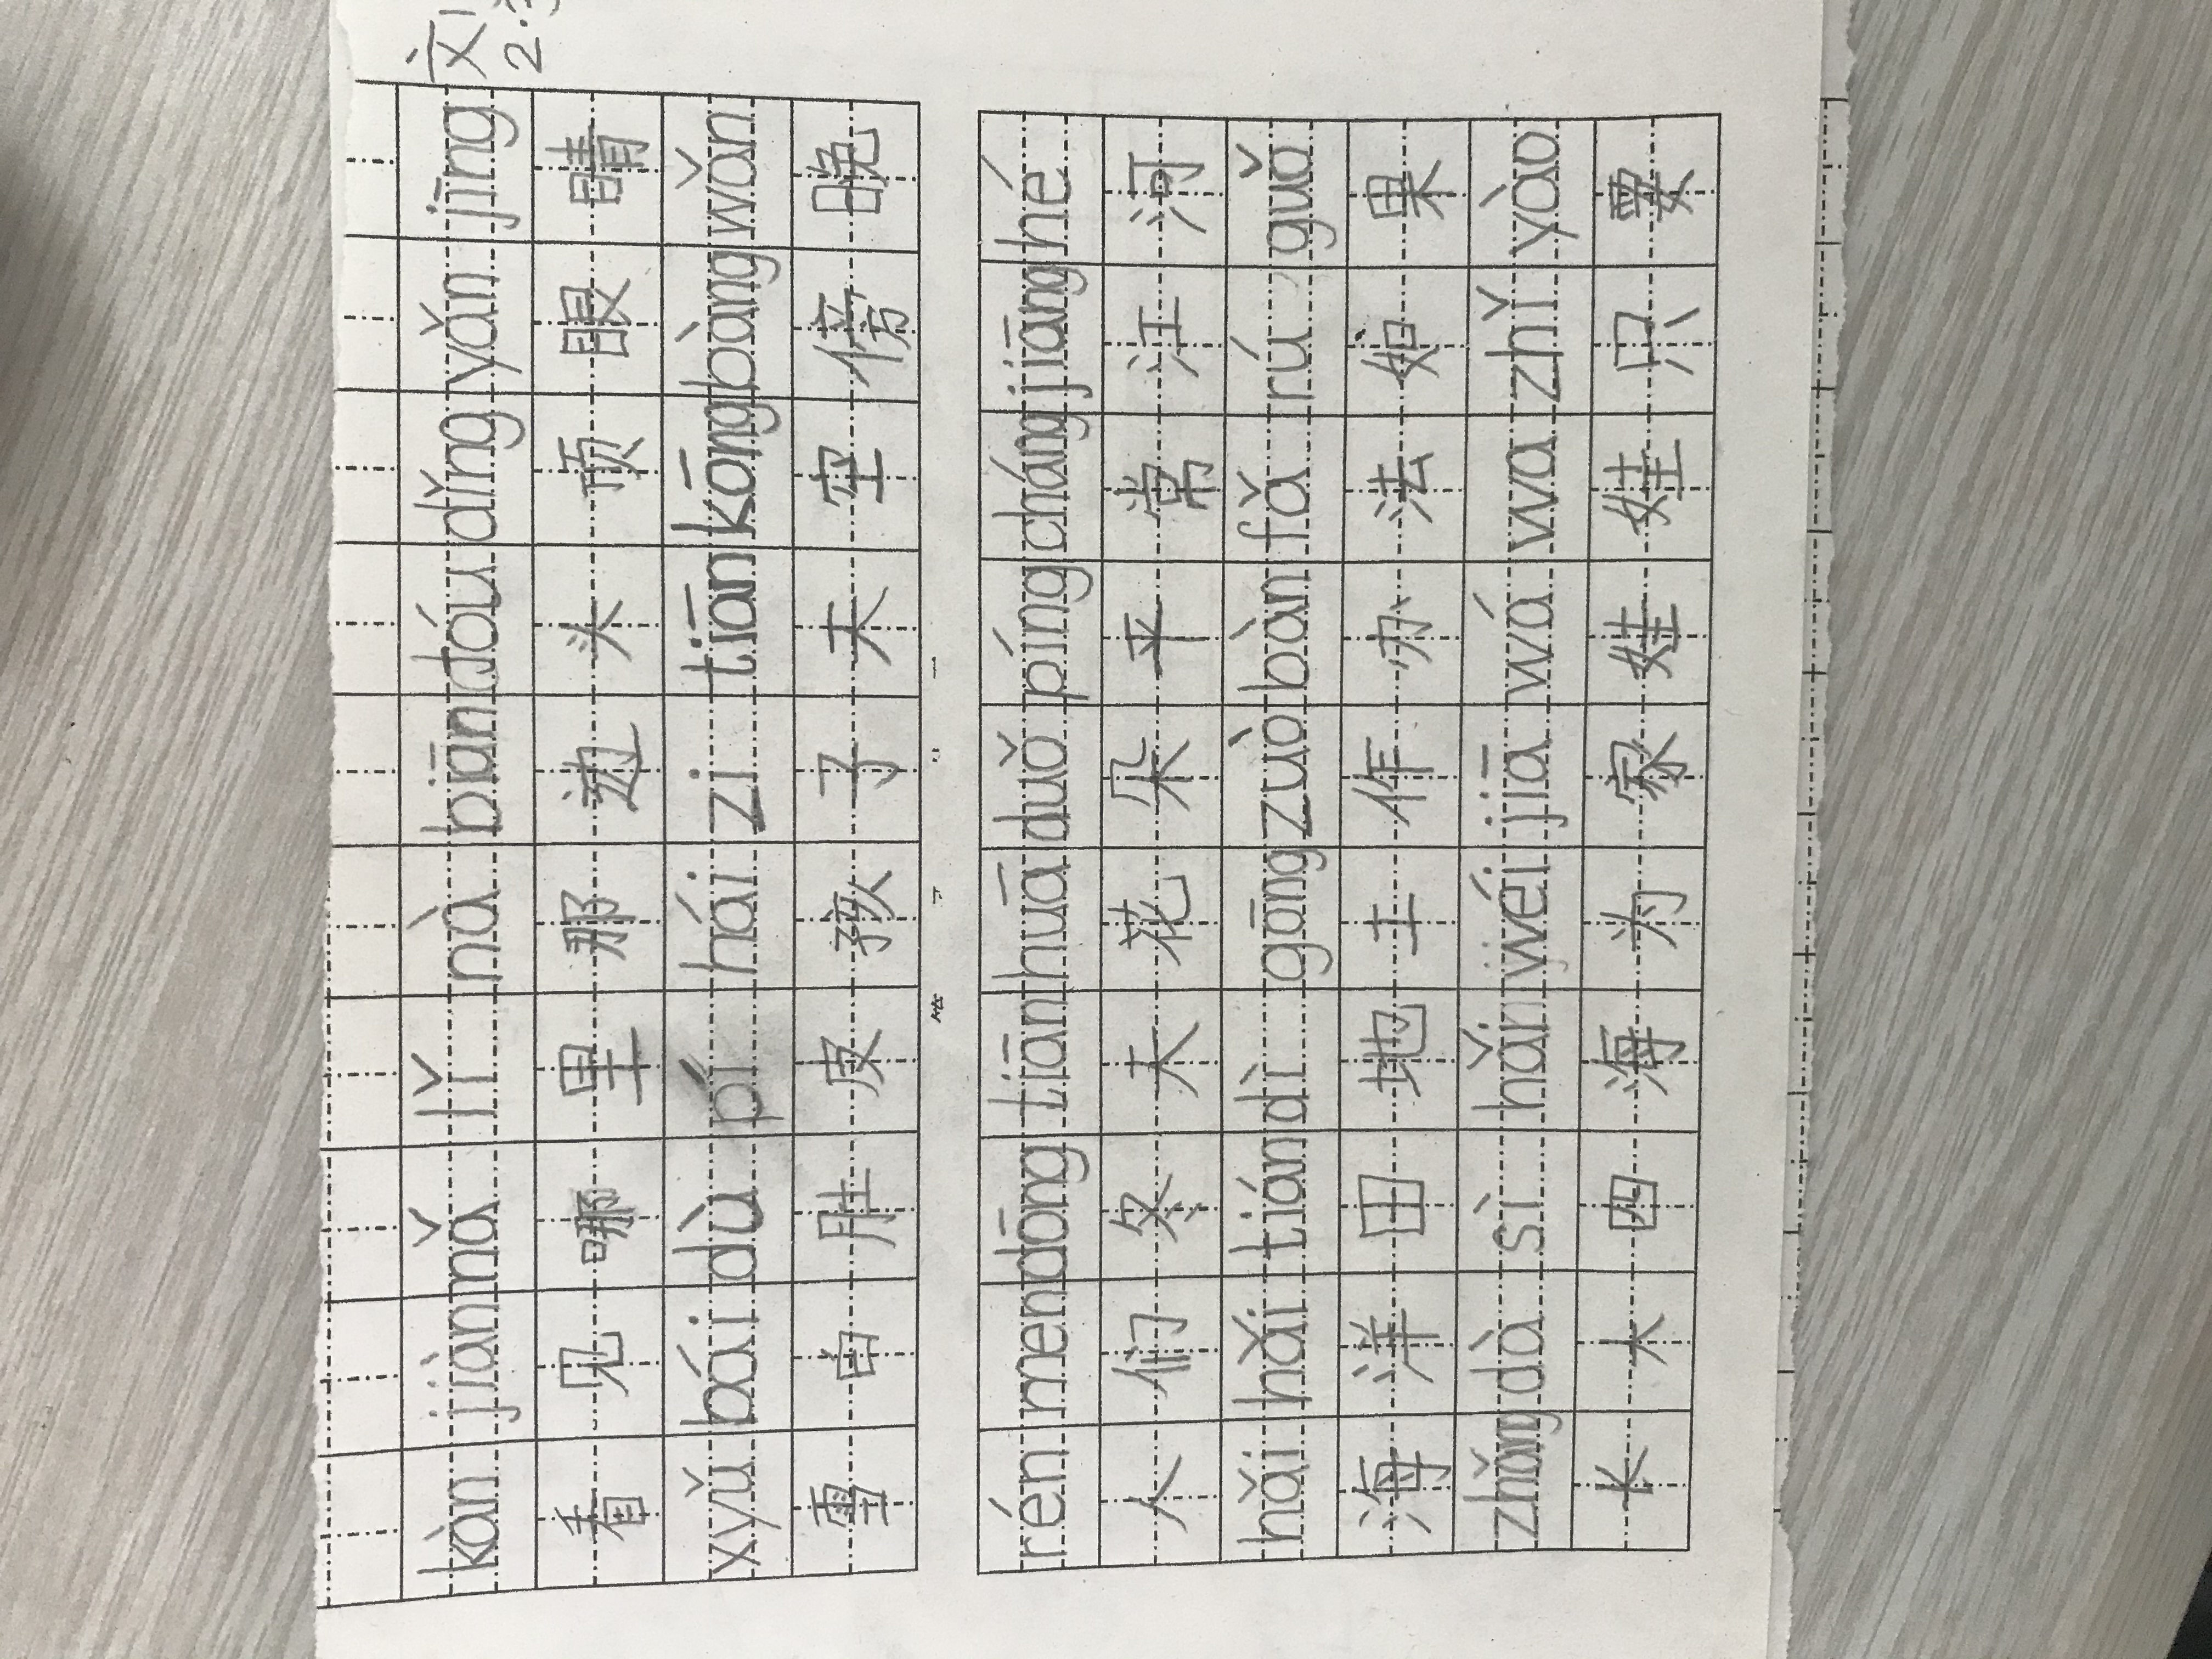 文
2.3
kàn jiàn nǎ lǐ nà biān tóu dǐng yǎn jīng
看见哪里那边头顶眼睛
xyǔ bái dù pí hái zi tiān kōng bàng wǎn
雪白肚皮孩子天空傍晚
rén men dōng tiān huā duǒ píng cháng jiāng hé
人们冬天花朵平常江河
hǎi hǎi tián dì gōng zuò bàn fǎ rú guǒ
海洋田地工作办法如果
zhǎng dà sì hǎi wéi jiā wá wa zhǐ yào
长大四海为家娃娃只要